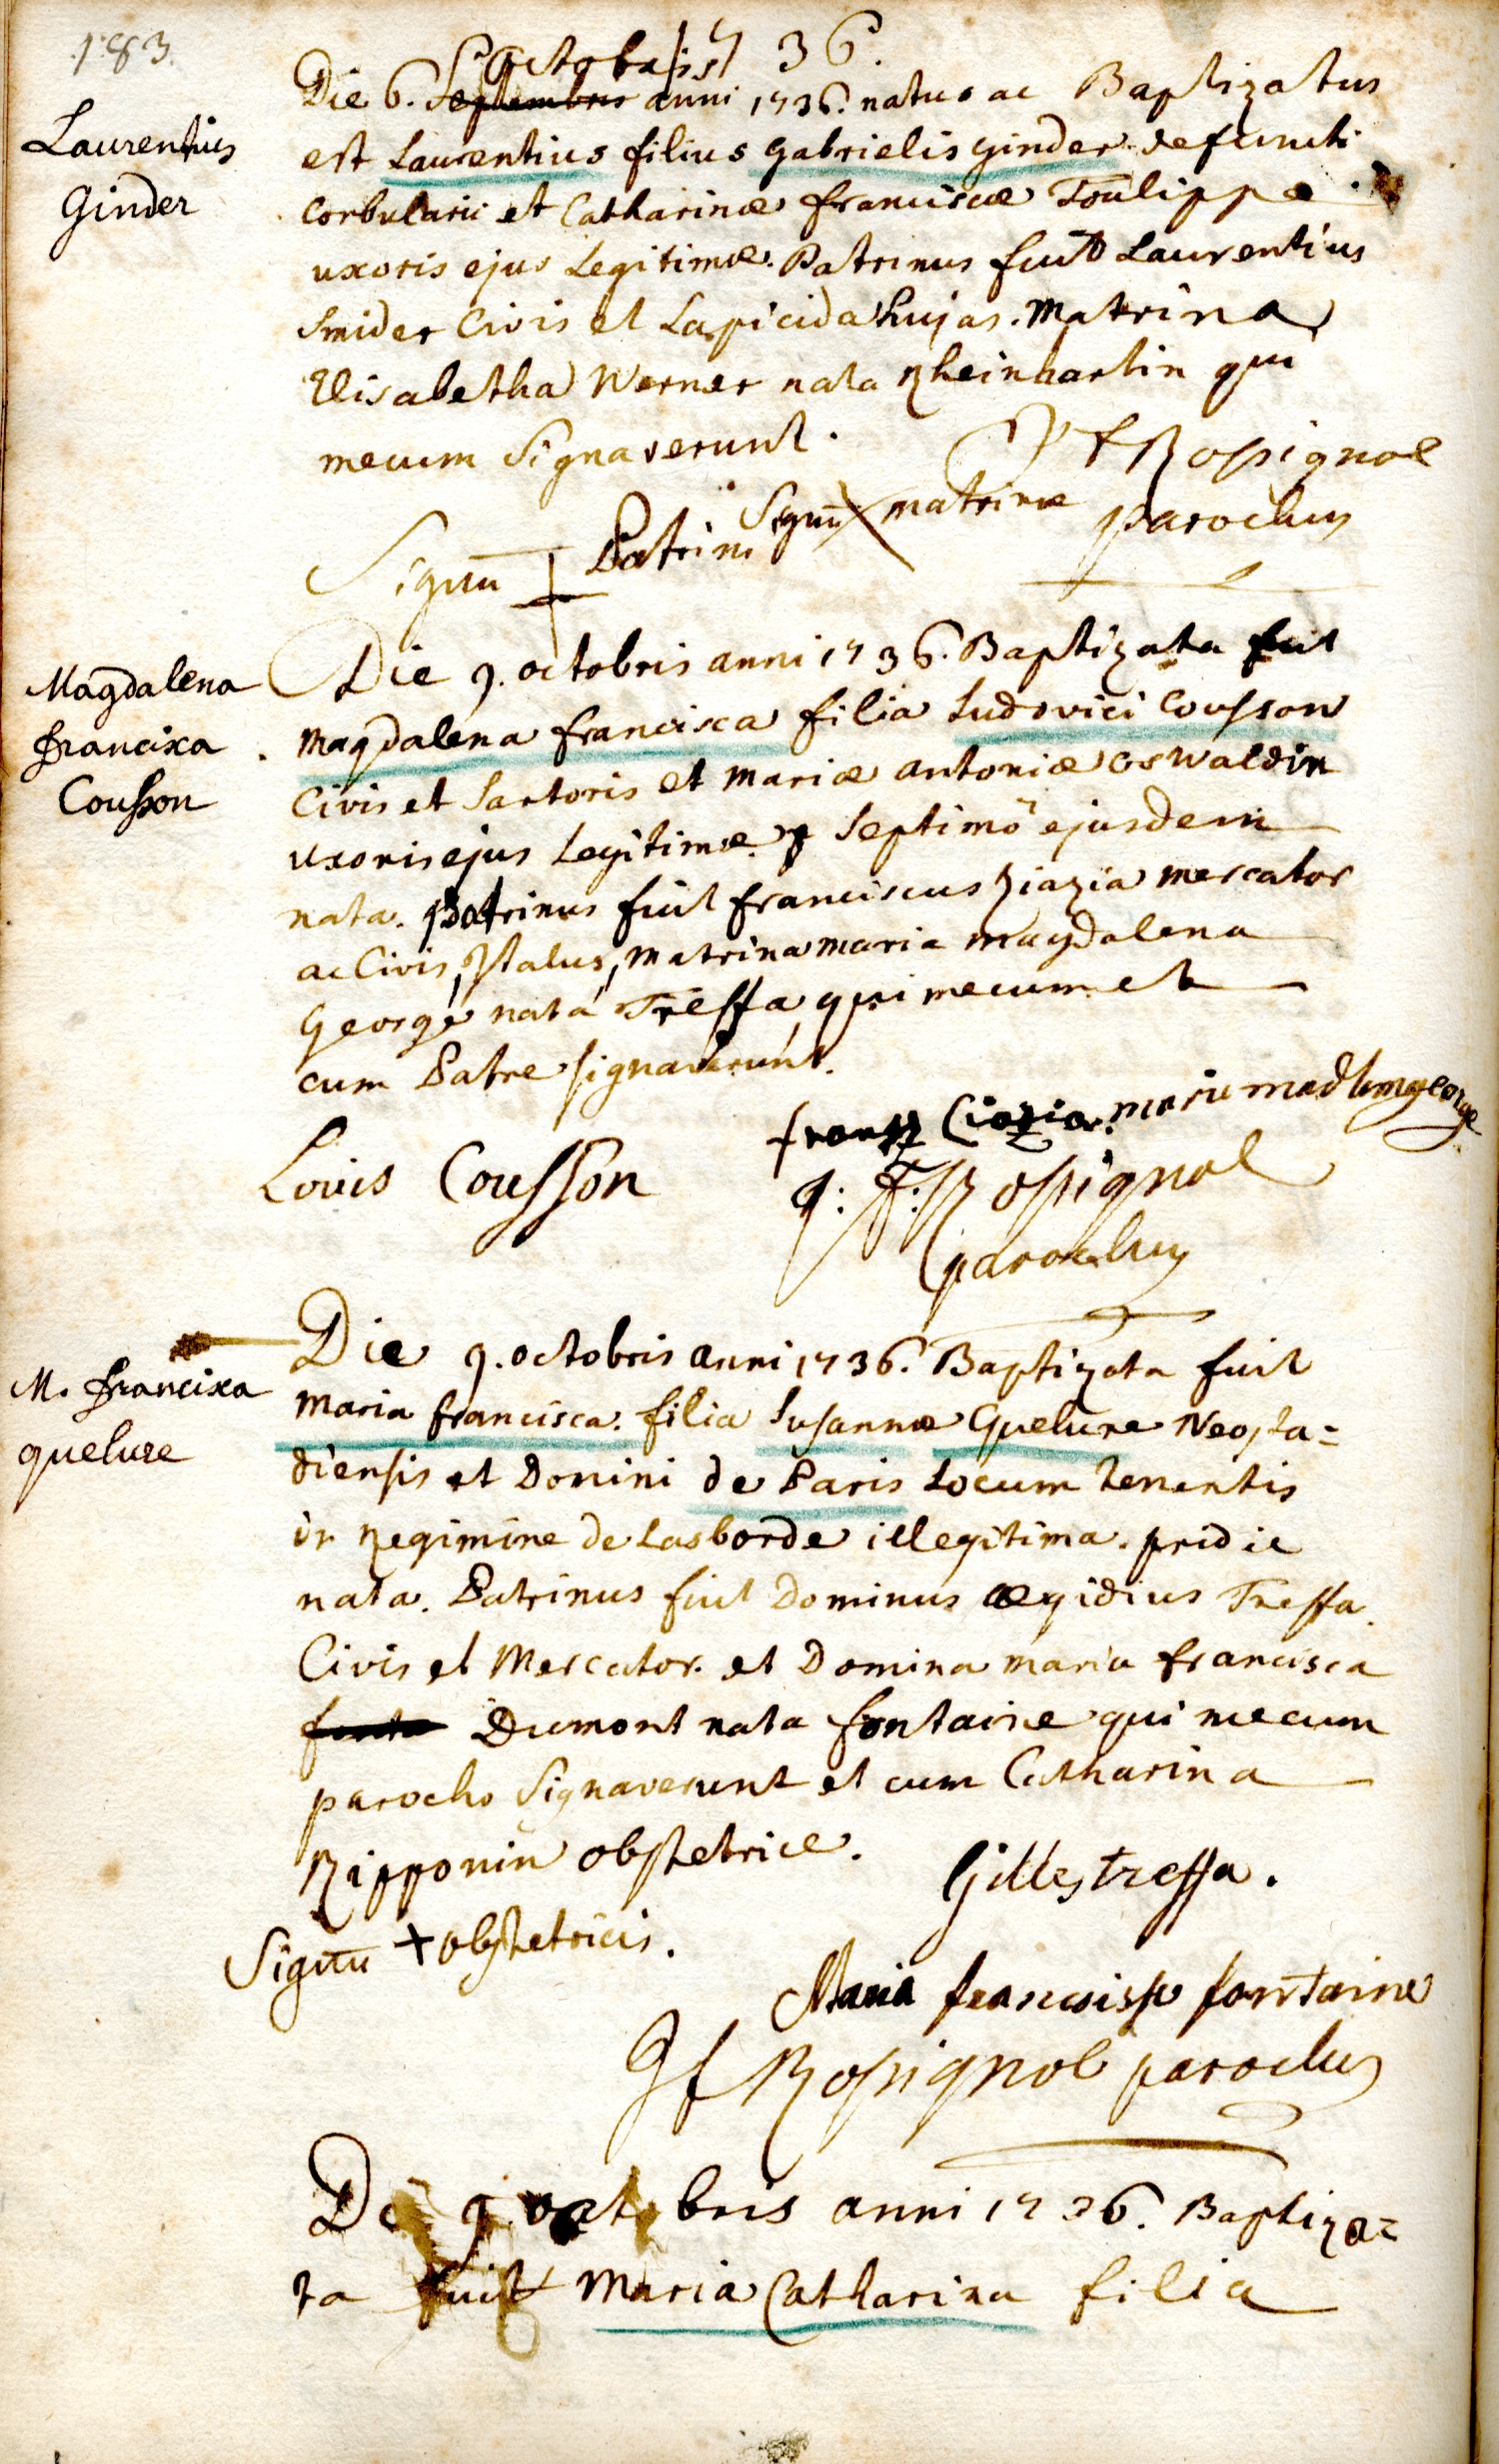 183.
1736.
Octobris
Die 6. Septembris anni 1736. natus ac Baptizatus
Laurentius
Ginder
est Laurentius filius Gabrielis Ginder defuncti
Corbularii et Catharinæ Franciscæ Toulippe
uxoris ejus Legitimæ. Patrinus fuit Laurentius
Smider Civis et Lapicida hujas. Matrina
Elisabetha Werner nata Rheinhartin qui
mecum Signaverunt.
Rossignol
parochus
Signū Patrini Signū matrinæ
Magdalena
Francisca
Cousson
Die 9. octobris anni 1736. Baptizata fuit
Magdalena Francisca filia Ludovici Cousson
Civis et Sartoris et Mariæ Antoniæ Oswaldin
uxoris ejus Legitimæ Septimo ejusdem
nata. Patrinus fuit Franciscus Ziazia mercator
ac Civis, Italus, Matrina maria magdalena
George nata Treffa qui mecum et
cum Patre signaverunt.
Louis Cousson
Ciozia. marie madlen george
J: F: Rossignol
parochus
M. Francisca
quelure
Die 9. octobris anni 1736. Baptizata fuit
Maria Francisca. filia Susannæ Quelure Neosta=
diensis et Domini de Paris Locum tenentis
in Regimine de Lasborde illegitima. pridie
nata. Patrinus fuit Dominus Ægidius Treffa.
Civis et Mercator. et Domina maria francisca
Dumont nata fontaine qui mecum
parocho Signaverunt et cum Catharina
Ripponin obstetrice.
Gilles treffa.
Signū + obstetricis.
Maria francoisse fontaine
Jf Rossignol parochus
Die 9. octobris anni 1736. Baptiza=
ta fuit Maria Catharina filia